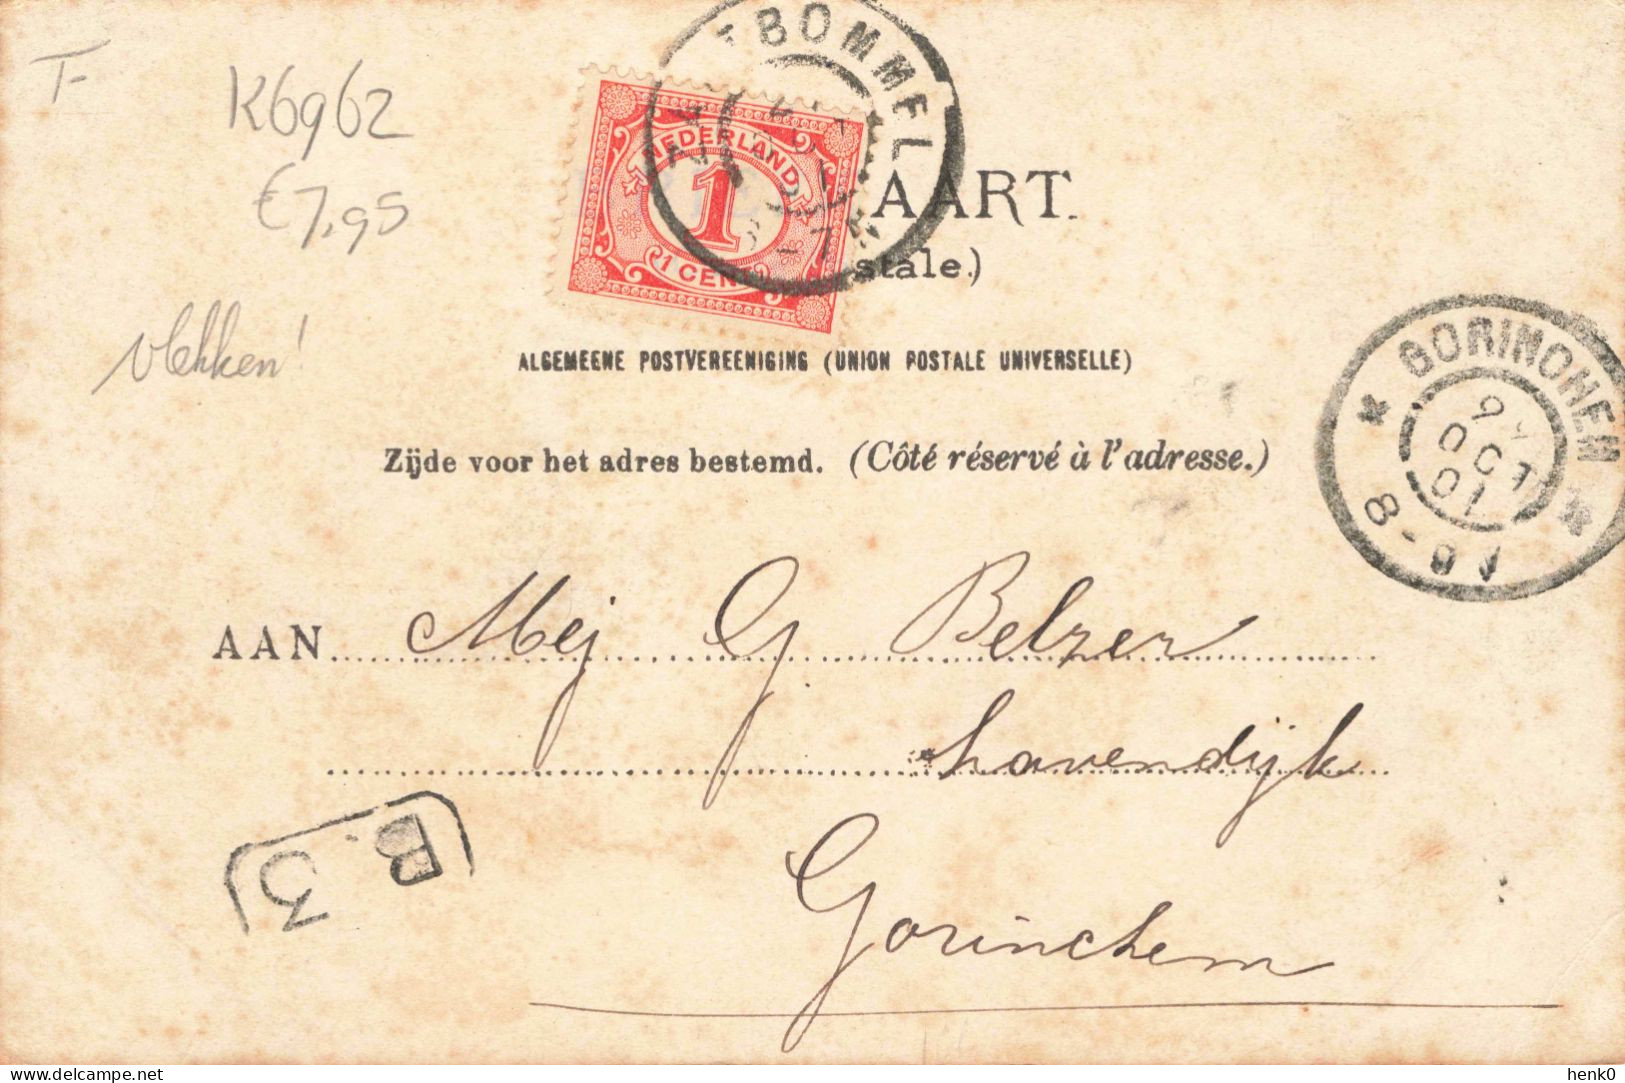 T-
K6962
€7,95
vlekken!
TBOMMEL
NEDERLAND
1
1 CENT
AART.
stale.)
ALGEMEENE POSTVEREENIGING (UNION POSTALE UNIVERSELLE)
GORINCHEM
9
OCT
01
8-9V
Zijde voor het adres bestemd. (Côté réservé à l'adresse.)
AAN Mej G Belzer
havendijk
Gorinchem
B.3
henk0